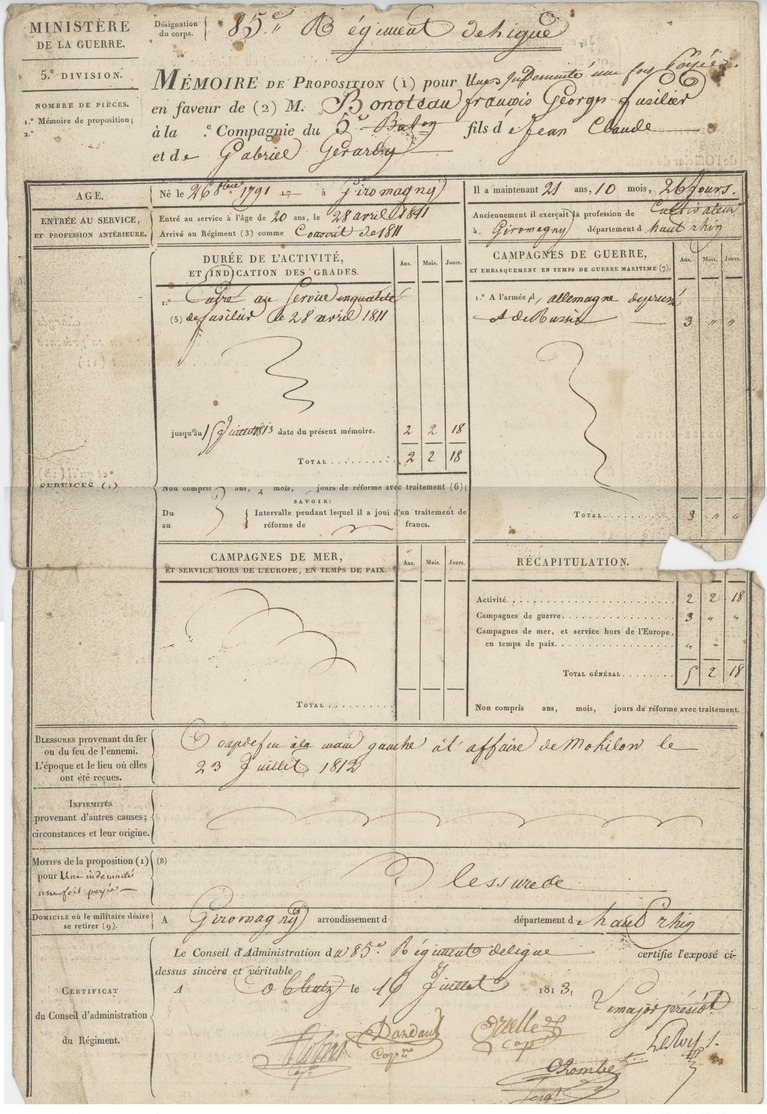 MINISTÈRE
DE LA GUERRE.
5.e DIVISION.
NOMBRE DE PIÈCES.
1.° Mémoire de proposition;
2.°
Désignation
du corps.
85e Régiment de ligne
MÉMOIRE DE PROPOSITION (1) pour Une Indemnité une fois payée
en faveur de (2) M. Bonoteau françois Georges fusilier
à la .e Compagnie du 5e Baton fils de Jean Claude
et de Gabriel Gerardy
AGE.
Né le 26 8bre 1791 à Giromagny
Il a maintenant 21 ans, 10 mois, 26 jours.
ENTRÉE AU SERVICE,
ET PROFESSION ANTÉRIEURE.
Entré au service à l'âge de 20 ans, le 28 avril 1811
Arrivé au Régiment (3) comme Conscrit de 1811
Anciennement il exerçait la profession de Cultivateur
à Giromagny département d haut rhin
SERVICES (4)
DURÉE DE L'ACTIVITÉ,
ET INDICATION DES GRADES.
Ans. Mois. Jours.
1.° Entré au Service en qualité
(5) de fusilier le 28 avril 1811
jusqu'au 15 Juillet 1813 date du présent mémoire. 2 2 18
TOTAL 2 2 18
Non compris ans, mois, jours de réforme avec traitement (6);
SAVOIR:
Du
au
Intervalle pendant lequel il a joui d'un traitement de
réforme de francs.
CAMPAGNES DE GUERRE,
ET EMBARQUEMENT EN TEMPS DE GUERRE MARITIME (7).
Ans. Mois. Jours.
1.° A l'armée d'allemagne de prusse
et de Russie 3 " "
TOTAL 3 " "
CAMPAGNES DE MER,
ET SERVICE HORS DE L'EUROPE, EN TEMPS DE PAIX.
Ans. Mois. Jours.
TOTAL
RÉCAPITULATION.
Ans. Mois. Jours.
Activité. 2 2 18
Campagnes de guerre. 3 " "
Campagnes de mer, et service hors de l'Europe,
en temps de paix. " "
TOTAL GÉNÉRAL 5 2 18
Non compris ans, mois, jours de réforme avec traitement.
BLESSURES provenant du fer
ou du feu de l'ennemi.
L'époque et le lieu où elles
ont été reçues.
Coup de feu à la main gauche à l'affaire de Mohilow le
23 Juillet 1812
INFIRMITÉS
provenant d'autres causes;
circonstances et leur origine.
MOTIFS de la proposition (1)
pour Une indemnité
une fois payée
(8)
Blessure de
DOMICILE OÙ le militaire désire
se retirer (9).
A Giromagny arrondissement d département d haut rhin
CERTIFICAT
du Conseil d'administration
du Régiment.
Le Conseil d'Administration du 85e Régiment de ligne certifie l'exposé ci-
dessus sincère et véritable
A Coblentz le 16 Juillet 1813.
Le major président
Dandault
Capne